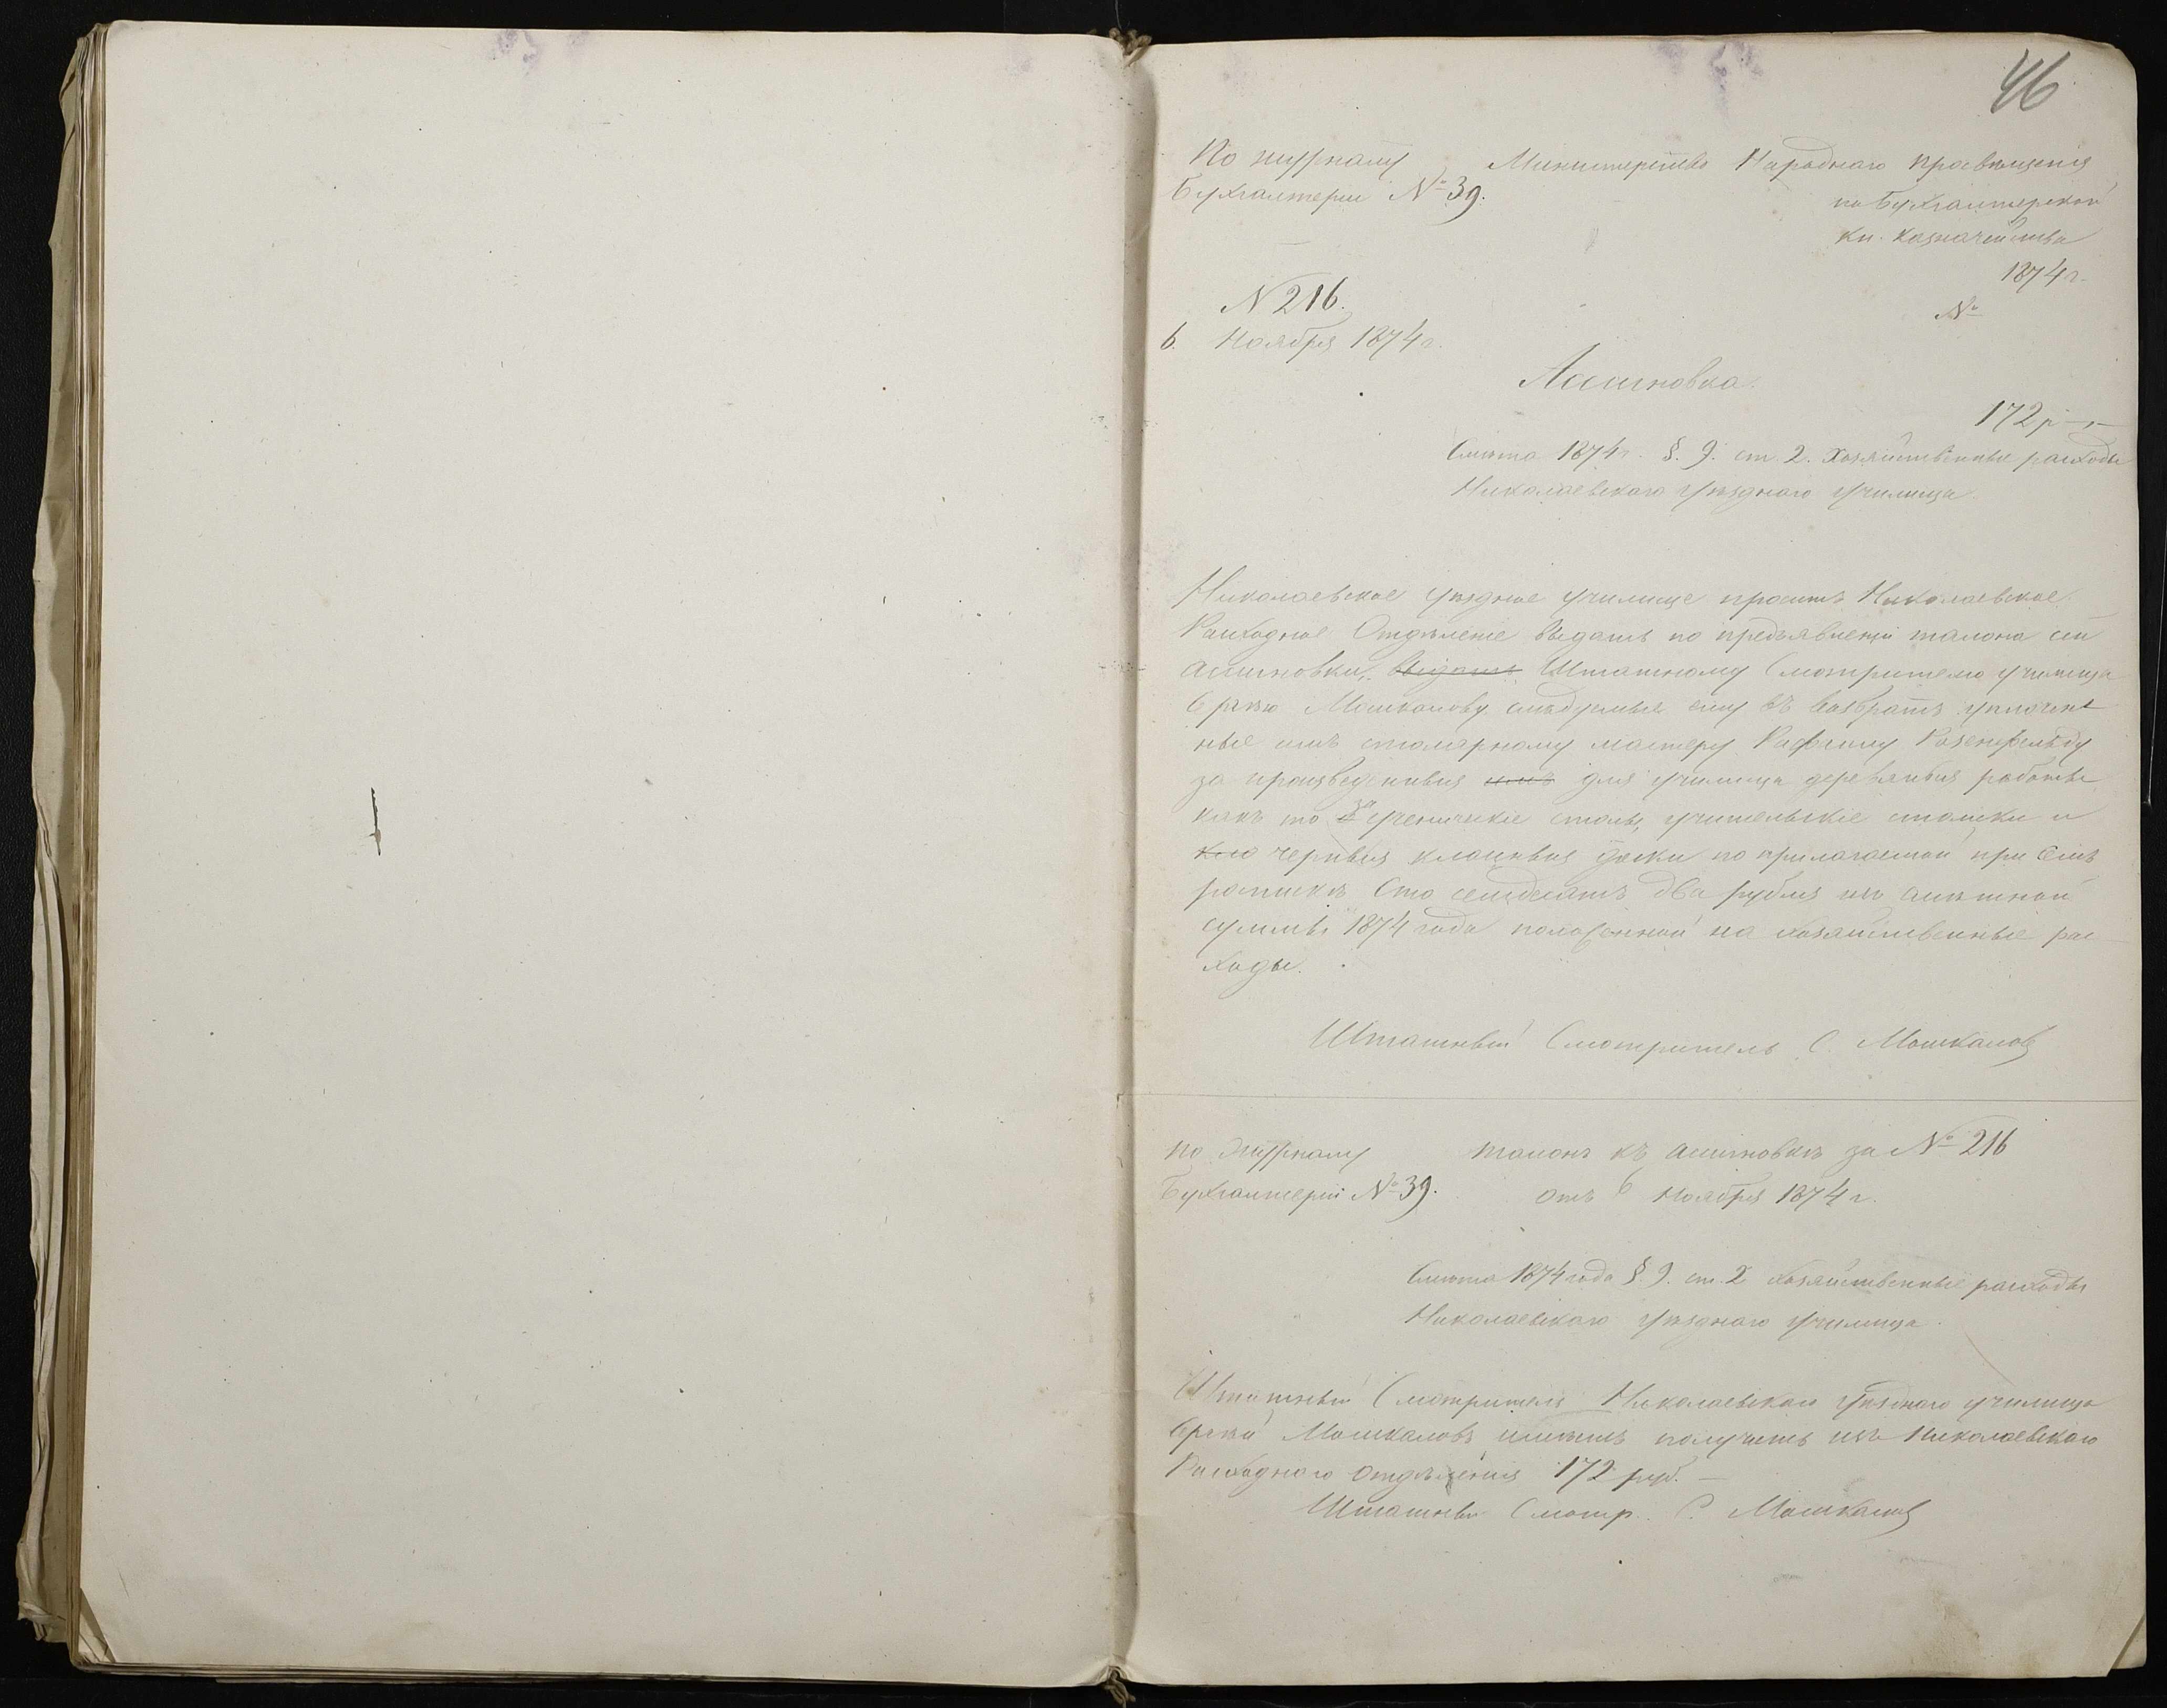 46
По журналу
Бухгалтеріи № 39.
Министерство Народнаго просвѣщенія
по Бухгалтерской
кн. казначейства
1874 г.
№
N 216.
6. Ноября 1874 г.
Ассигновка.
172 р — к
Смѣта 1874 г. §. 9. ст. 2. хозяйственные расходы
Николаевскаго уѣзднаго училища.
Николаевское уѣздное училище проситъ Николаевское
Расходное Отдѣленіе выдать по предъявленіи талона сей
Ассигновки, выдать Штатному Смотрителю училища
Сергѣю Мошкалову слѣдуемые ему въ возвратъ уплочен
ные имъ столярному мастеру Розенфельду
за произведенныя имъ для училища деревянныя работы
какъ то за ученическіе столы, учительскіе столики и
черныя классныя доски по прилагаемой при семъ
роспискѣ Сто семдесятъ два рубля изъ смѣтной
суммы 1874 года положенной на хозяйственные рас
ходы.
Штатный Смотритель С. Мошкалов
по Журналу
Бухгалтеріи № 39.
талонъ къ ассигновкѣ за № 216
отъ 6 Ноября 1874 г.
Смѣта 1874 года §. 9. ст. 2 хозяйственные расходы
Николаевскаго уѣзднаго училища.
Штатный Смотритель Николаевскаго уѣзднаго училища
Сергѣй Мошкаловъ имѣетъ получить изъ Николаевскаго
Расходнаго отдѣленія 172 руб. —
Штатный Смотр. С. Мошкалов